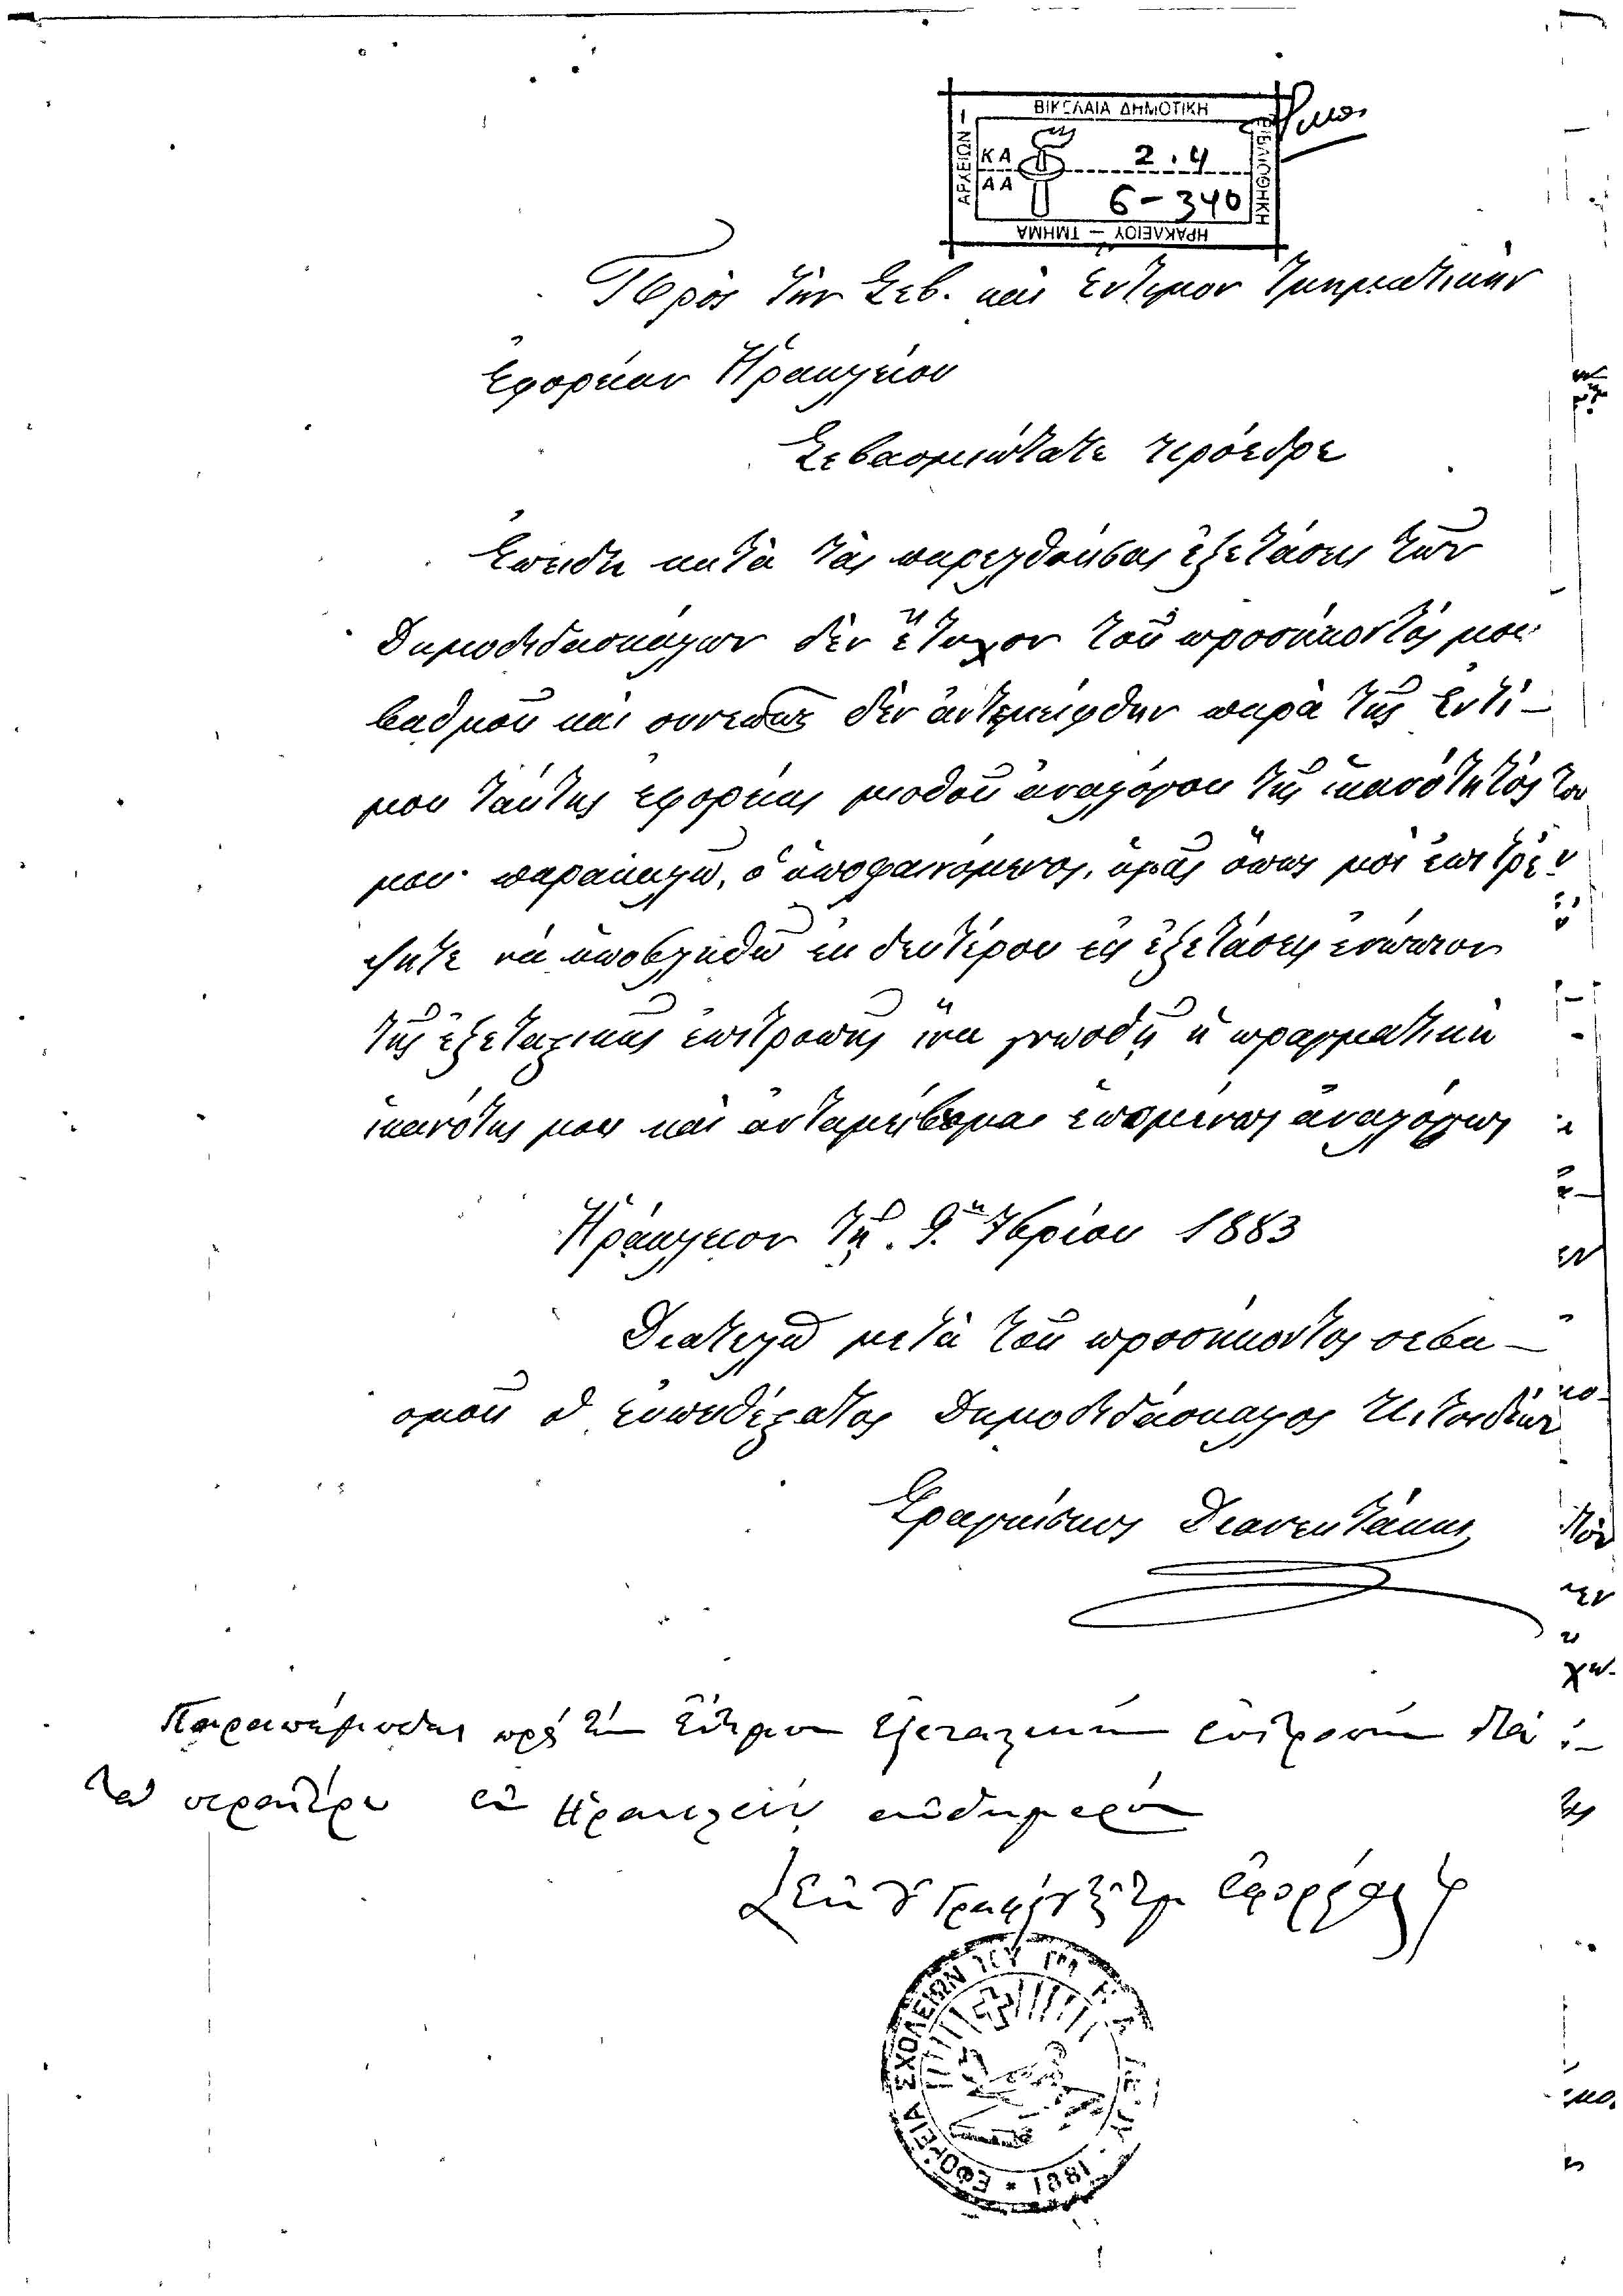 ΒΙΚΕΛΑΙΑ ΔΗΜΟΤΙΚΗ
ΒΙΒΛΙΟΘΗΚΗ
ΗΡΑΚΛΕΙΟΥ – ΤΜΗΜΑ
ΑΡΧΕΙΩΝ
ΚΑ 2.4
ΑΑ 6-340
Πρὸς τὴν Σεβ. καὶ Ἔντιμον Τμηματικὴν
Ἐφορείαν Ἡρακλείου
Σεβασμιώτατε πρόεδρε
Ἐπειδὴ κατὰ τὰς παρελθούσας ἐξετάσεις τῶν
Δημοδιδασκάλων δὲν ἔτυχον τοῦ προσήκοντός μοι
βαθμοῦ καὶ συνεπῶς δὲν ἀντημείφθην παρὰ τῆς Ἐντί-
μου ταύτης ἐφορείας μισθοῦ ἀναλόγου τῆς ἱκανότητός του
μου παρακαλῶ, ὁ ὑποφαινόμενος, ὑμᾶς ὅπως μοὶ ἐπιτρέ
ψητε νὰ ὑποβληθῶ ἐκ δευτέρου εἰς ἐξετάσεις ἐνώπιον
τῆς ἐξεταστικῆς ἐπιτροπῆς ἵνα γνωσθῇ ἡ πραγματικὴ
ἱκανότης μου καὶ ἀνταμείβομαι ἑπομένως ἀναλόγως
Ἡράκλειον τῇ 9ῃ 7βρίου 1883
Διατελῶ μετὰ τοῦ προσήκοντος σεβα-
σμοῦ ὁ εὐπειθέστατος Δημοδιδάσκαλος
Διαλεκτάκης
Παραπέμπεται πρὸς τὴν Ἔντιμον Ἐξεταστικὴν ἐπιτροπὴν διὰ
τὰ περαιτέρω ἐν Ἡρακλείῳ αὐθημερόν
Ἐκ τοῦ Γραφείου τῆς Ἐφορείας
ΕΦΟΡΕΙΑ ΣΧΟΛΕΙΩΝ ΤΟΥ
1881